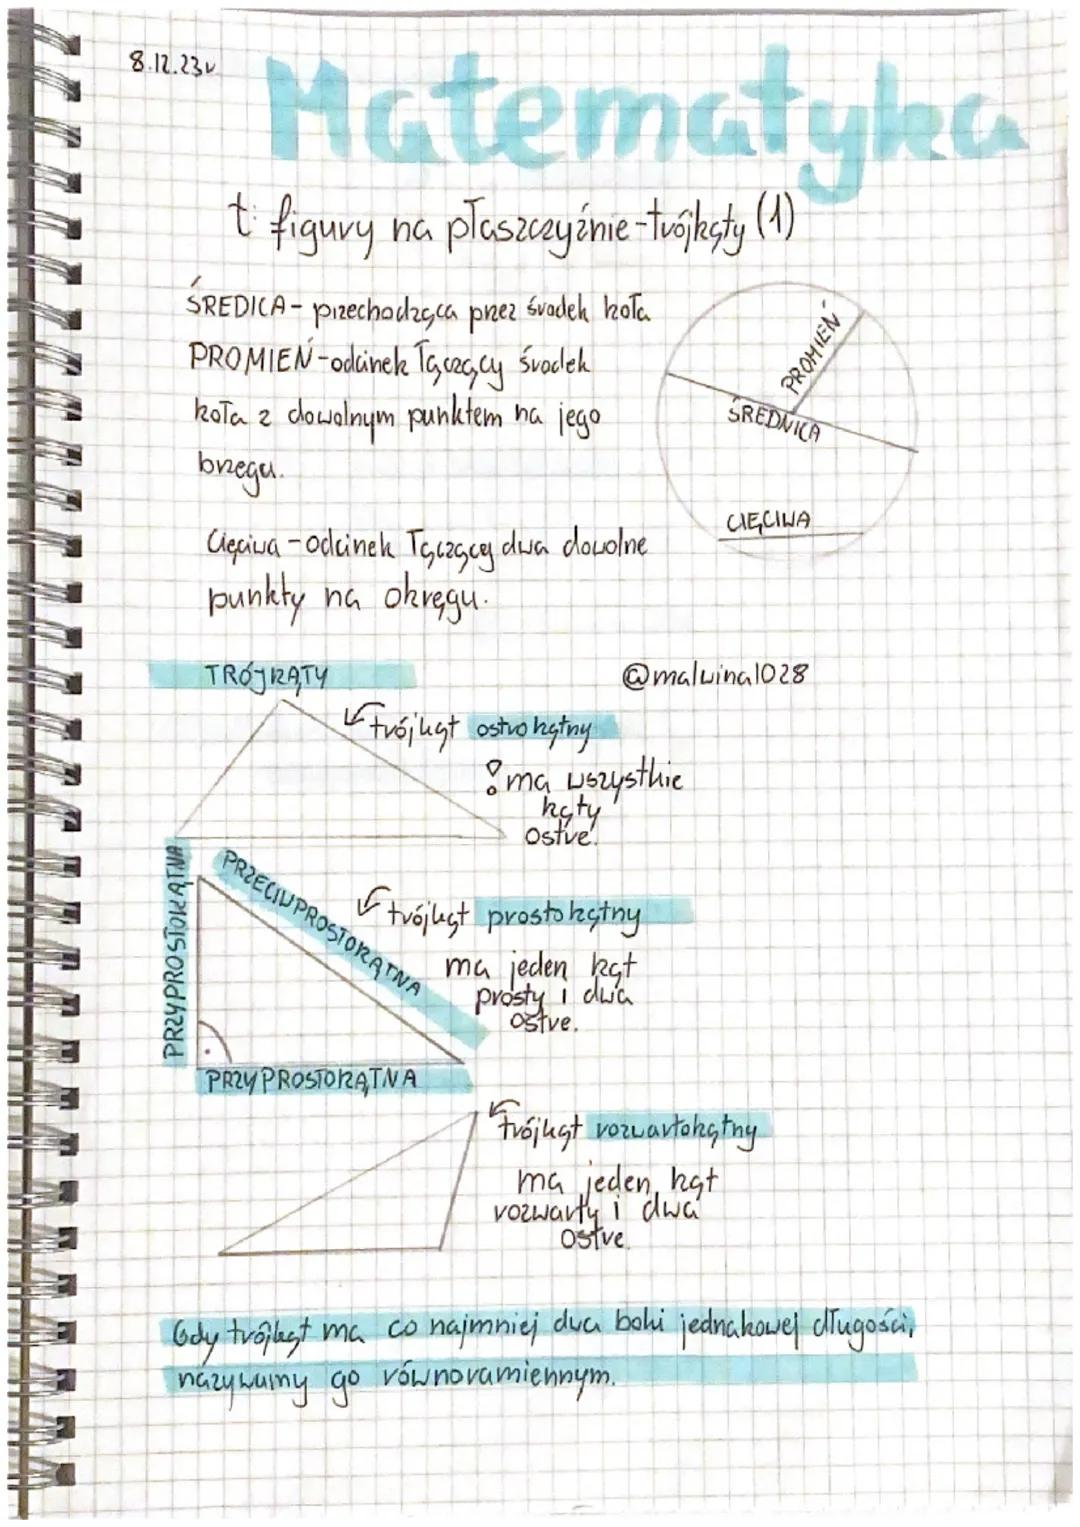 8.12.23r
Matematyka
t: figury na płaszczyźnie - trójkąty (1)
ŚREDICA - przechodząca przez środek koła
PROMIEŃ - odcinek łączący środek
koła z dowolnym punktem na jego
brzegu.
Cięciwa - odcinek łączący dwa dowolne
punkty na okręgu.
PROMIEŃ
ŚREDNICA
CIĘCIWA
TRÓJKĄTY
@malwina1028
trójkąt ostrokątny
! ma wszystkie
kąty
ostre.
PRZYPROSTOKĄTNA
PRZECIWPROSTOKĄTNA
trójkąt prostokątny
ma jeden kąt
prosty i dwa
ostre.
PRZYPROSTOKĄTNA
trójkąt rozwartokątny
ma jeden kąt
rozwarty i dwa
ostre.
Gdy trójkąt ma co najmniej dwa boki jednakowej długości,
nazywamy go równoramiennym.